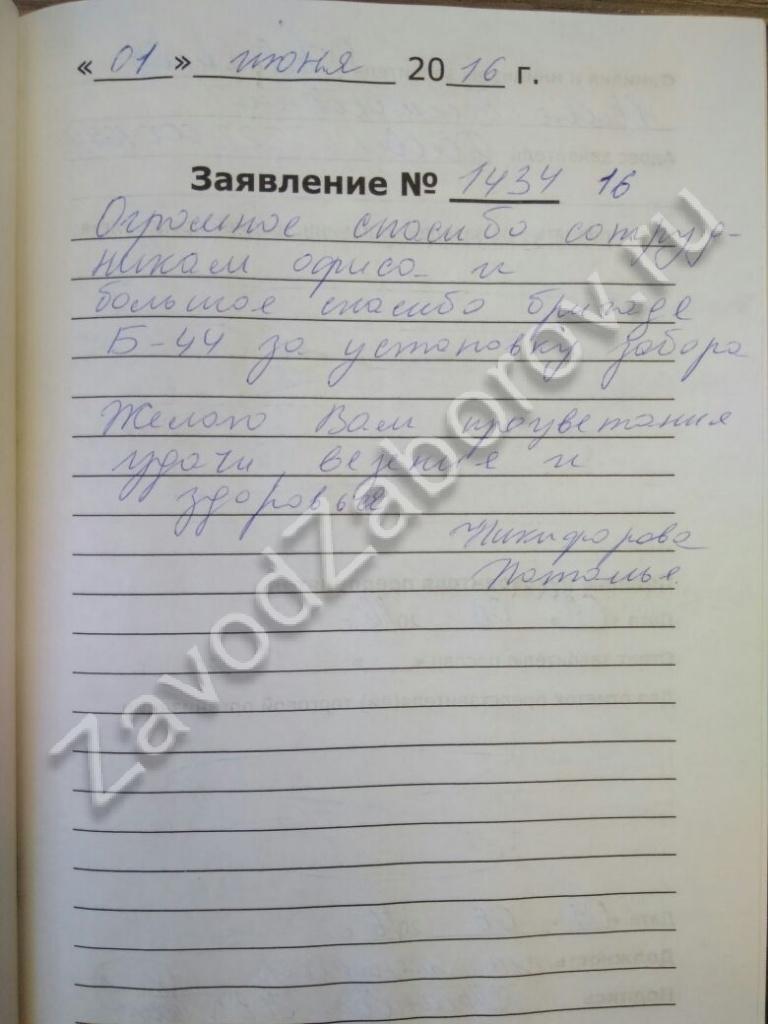 «01» июня 2016 г.
Заявление № 1434 16
Огромное спасибо сотруд-
никам офиса и
большое спасибо бригаде
Б-44 за установку забора
Желаю Вам процветания
удачи, везения и
здоровья
Никифорова
Наталья.
ZavodZaborov.ru